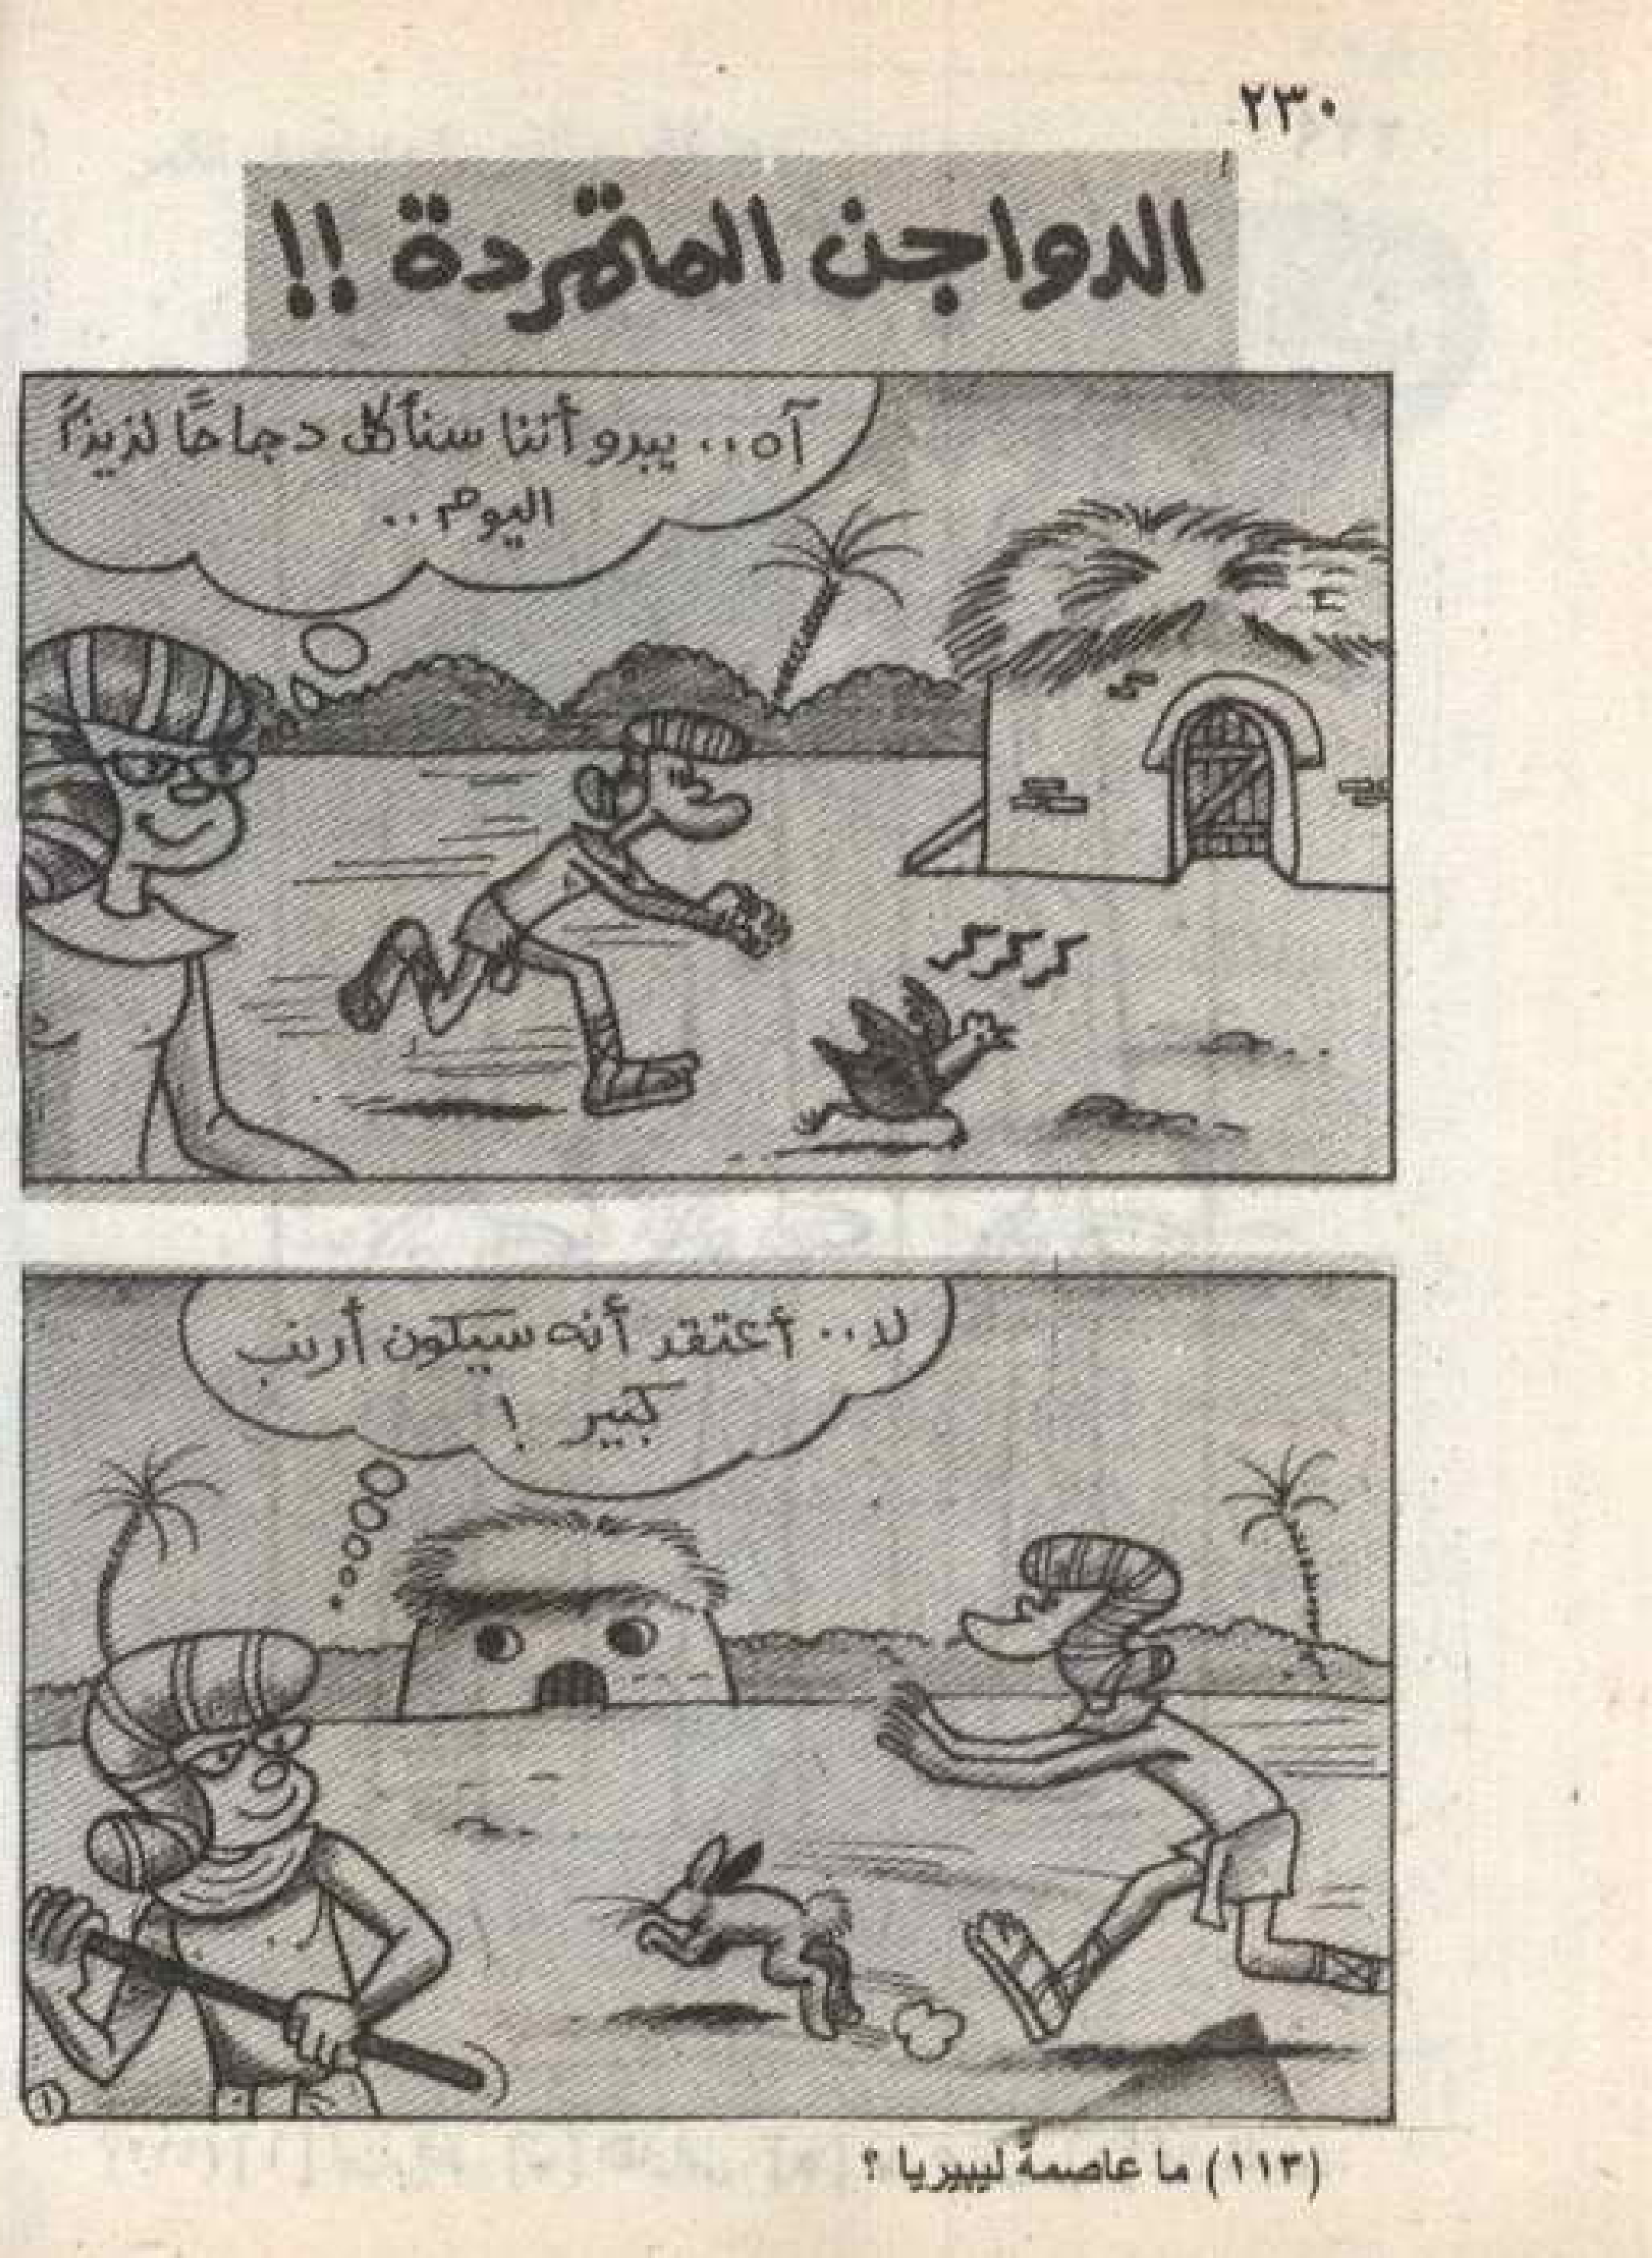 ٢٣٠
الدواجن المتمردة !!
آه.. يبدو أننا سنأكل دجاجًا لذيذًا
اليوم..
لا.. أعتقد أنه سيكون أرنب
كبير !
١
(١١٣) ما عاصمة ليبيريا ؟